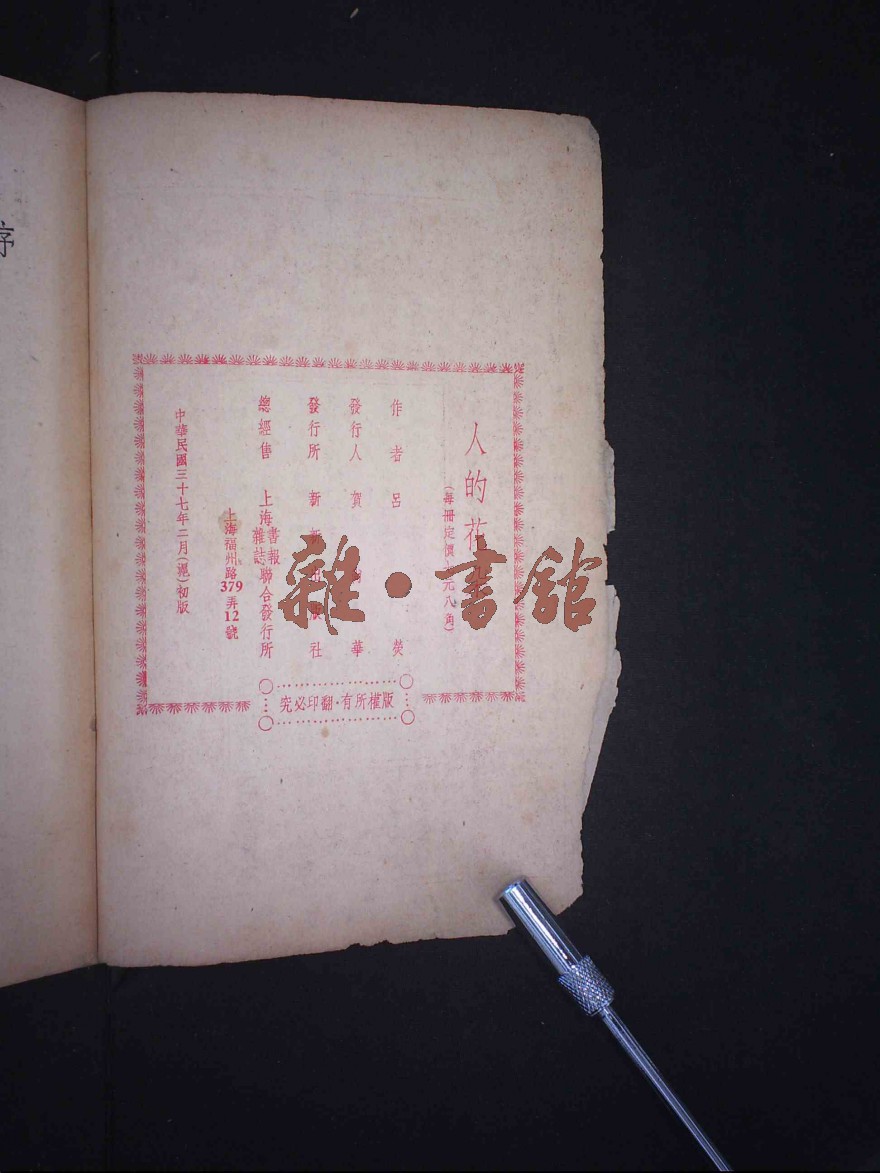 人的花
(每冊定價 元八角)
作者 呂 熒
發行人 賀 華
發行所 新新出版社
總經售 上海書報雜誌聯合發行所
上海福州路379弄12號
中華民國三十七年二月(滬)初版
版權所有·翻印必究
序
雜·書館